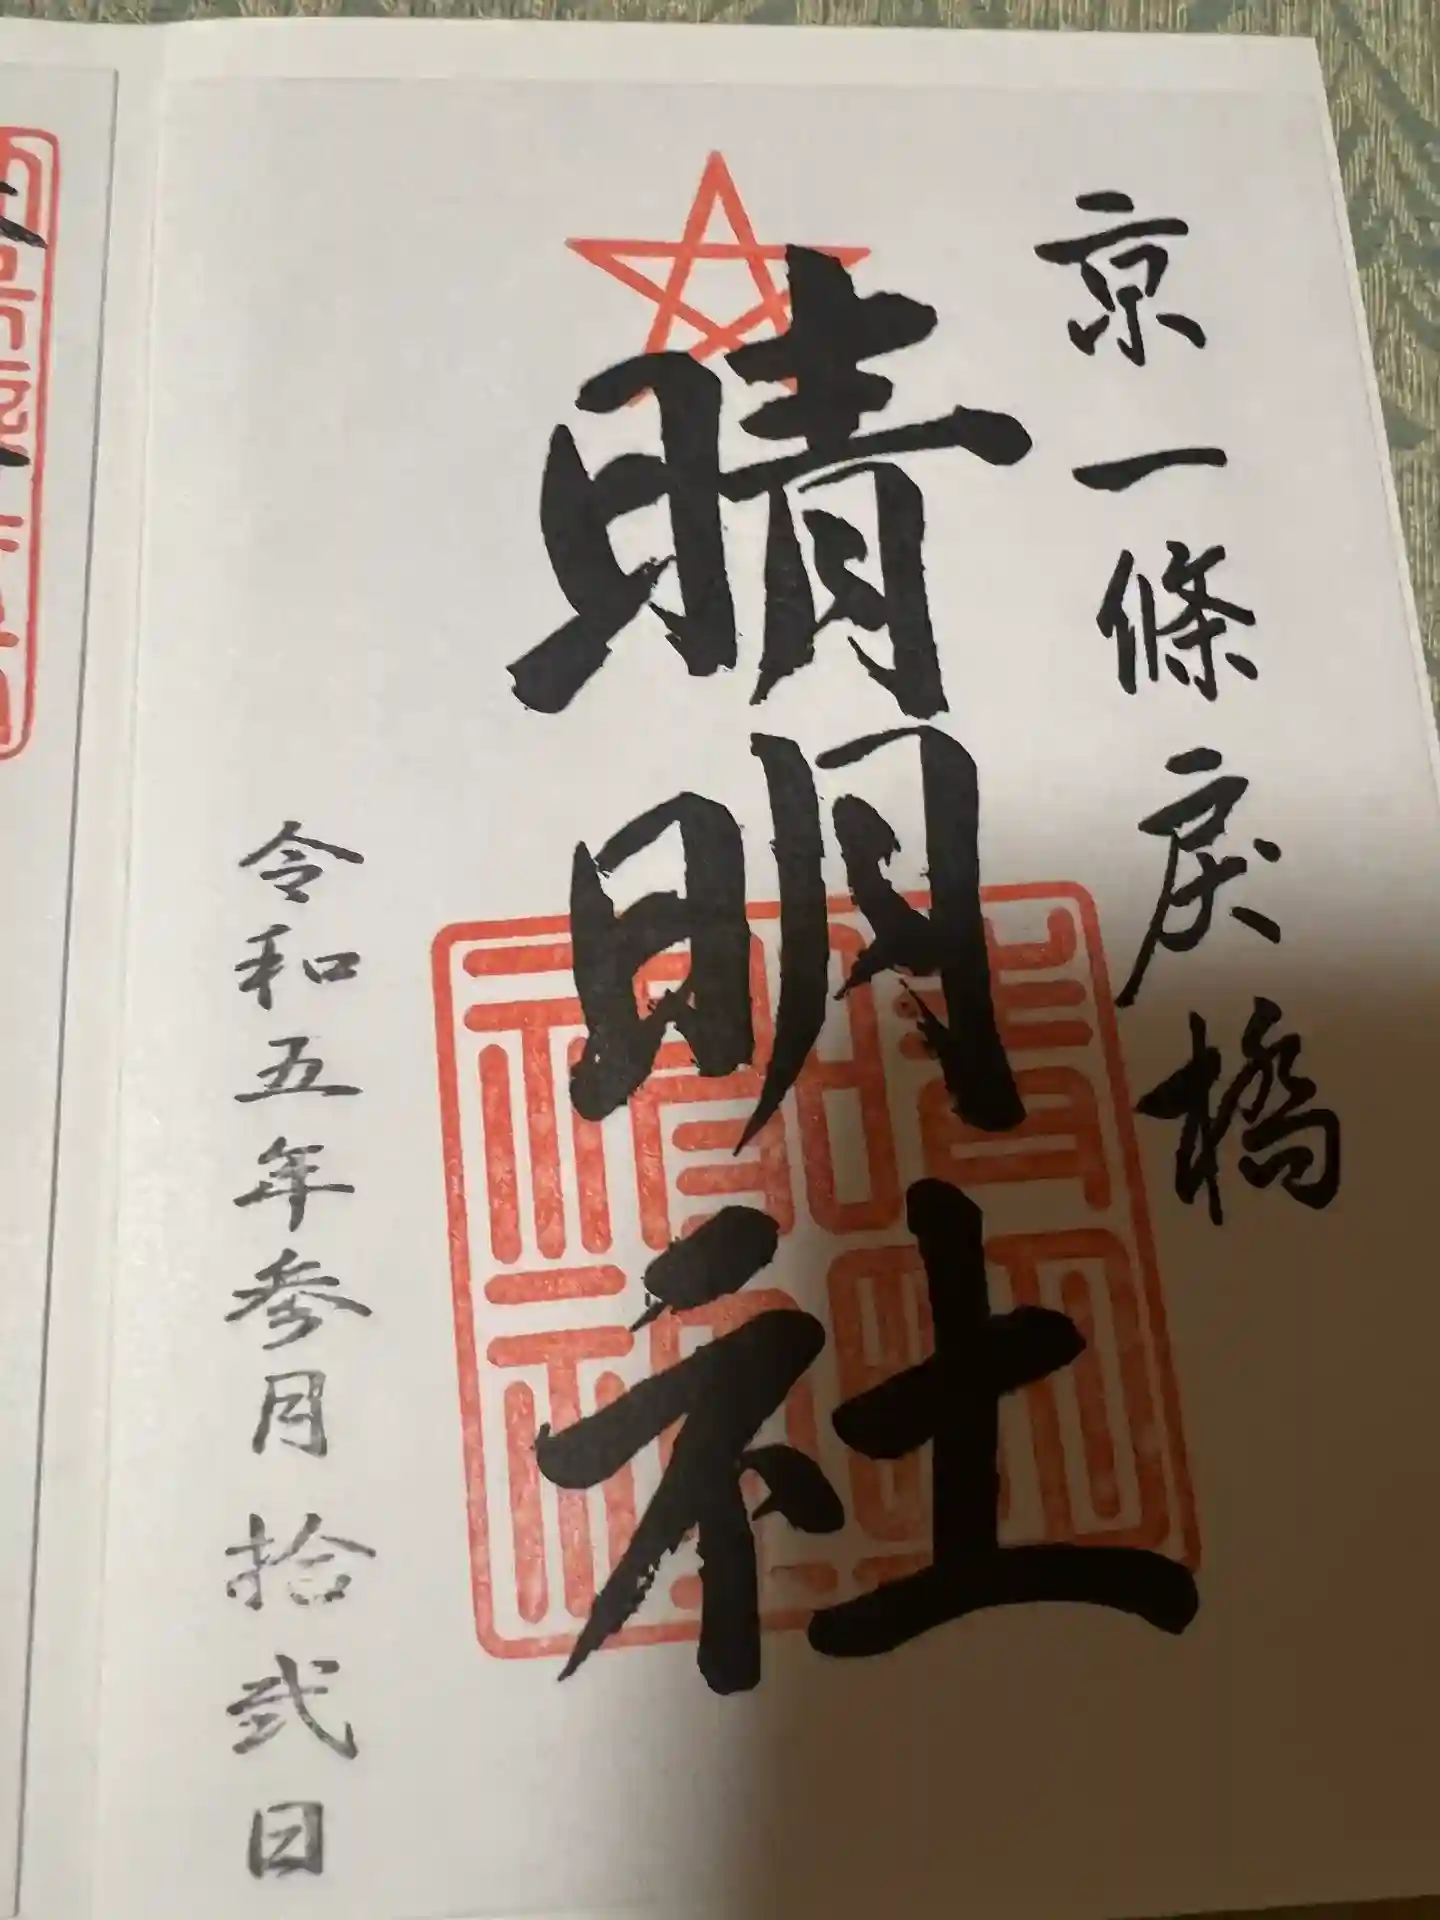 京一條戻橋
晴明社
晴明神社
令和五年参月拾弐日